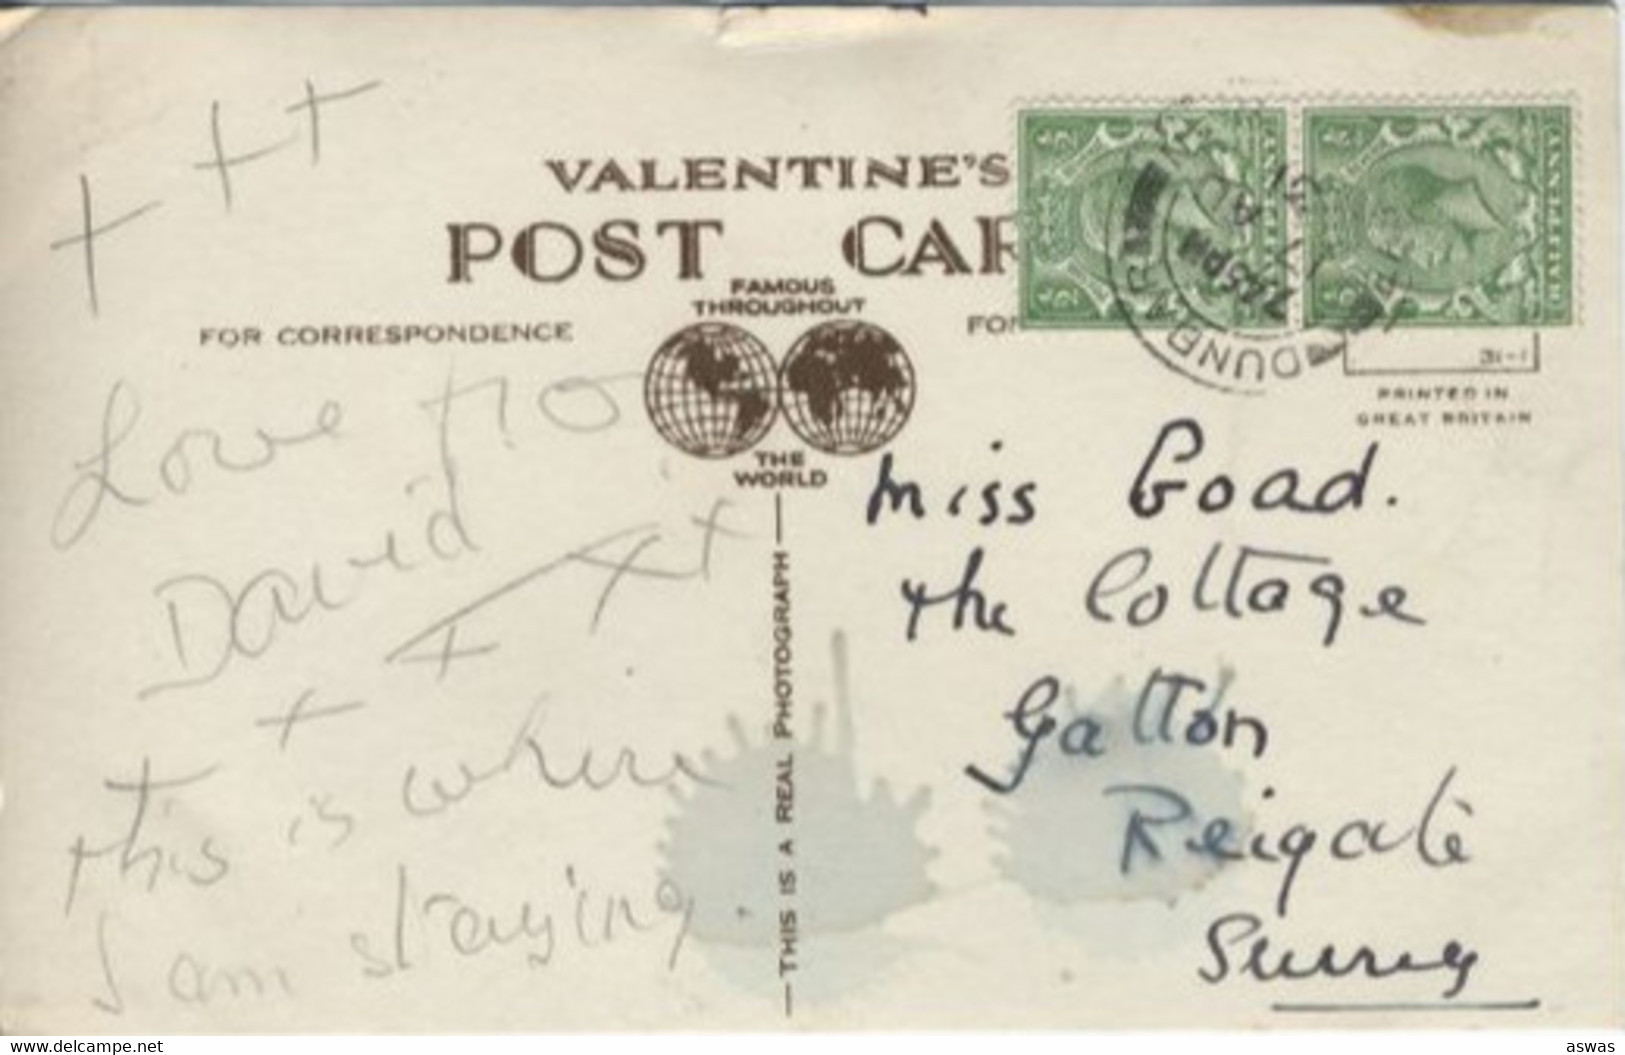 VALENTINE'S
POST CAR
FAMOUS
THROUGHOUT
THE
WORLD
FOR CORRESPONDENCE
FO
31-1
PRINTED IN
GREAT BRITAIN
THIS IS A REAL PHOTOGRAPH
HALFPENNY
HALFPENNY
DUNBAR
7.45PM
17 AU
31
+ + +
Love
David
+ + + + +
this is where
I am staying.
Miss Goad.
the Cottage
Gatton
Reigate
Surrey
www.delcampe.net
aswas